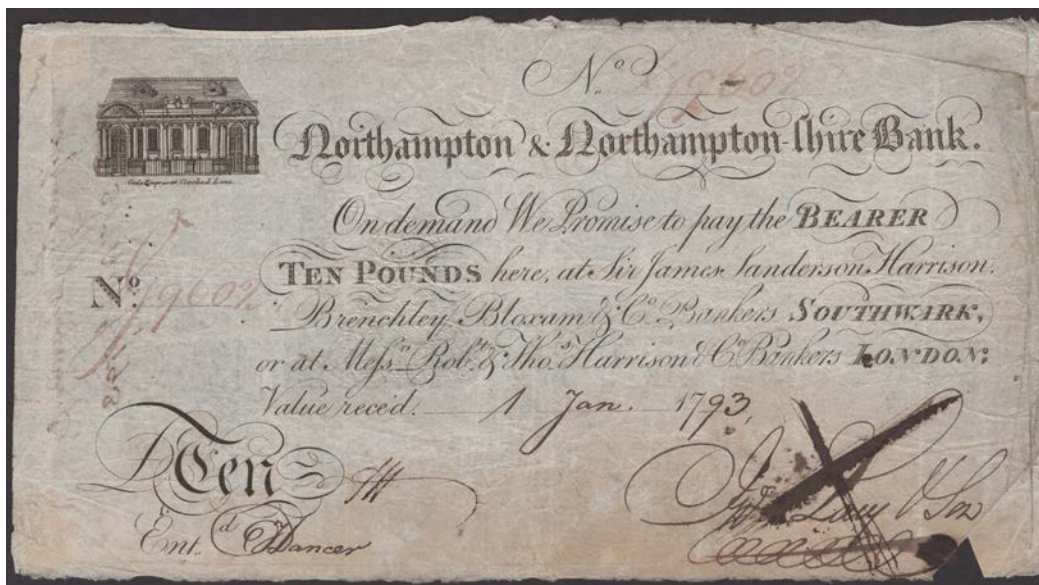 Nº
Northampton & Northampton-shire Bank.
On demand We Promise to pay the BEARER
TEN POUNDS here, at Sir James Sanderson, Harrison.
Brenchley, Bloxam & Cº. Bankers SOUTHWARK,
Nº.
or at Meſsrs. Robt. & Thos. Harrison & Cº. Bankers LONDON:
Value reced. 1 Jan. 1793
£Ten
Jno. Lacy & Son
Entd. Dancer